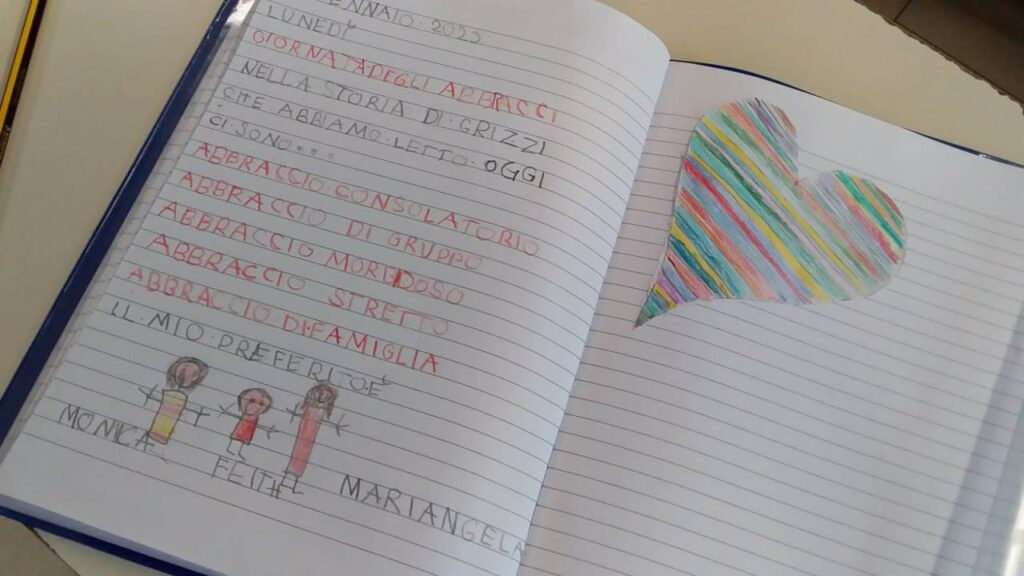 ENNAIO·2023
LUNEDÌ
GIORNATA DEGLI ABBRACCI
NELLA STORIA DI·GRIZZI
CHE ABBIAMO·LETTO·OGGI
CI·SONO...
ABBRACCIO·CONSOLATORIO
ABBRACCIO DI GRUPPO
ABBRACCIO MORBIDOSO
ABBRACCIO STRETTO
ABBRACCIO DI·FAMIGLIA
IL·MIO·PREFERITO È
MONICA
FEITH
MARIANGELA